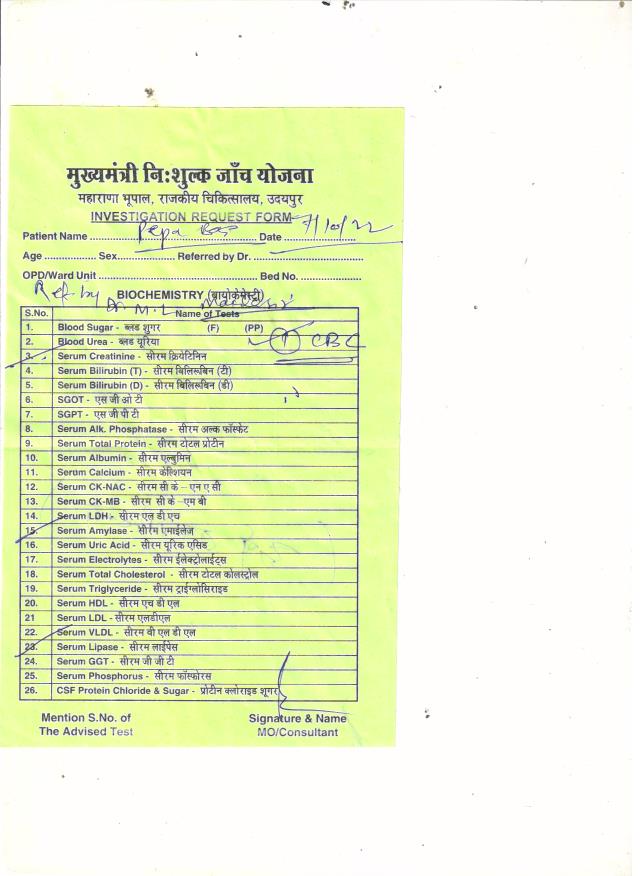 मुख्यमंत्री निःशुल्क जाँच योजना
महाराणा भूपाल, राजकीय चिकित्सालय, उदयपुर
INVESTIGATION REQUEST FORM
Patient Name .......... Pepa Bai .......... Date .......... 7/10/22
Age .......... Sex .......... Referred by Dr. ..........
OPD/Ward Unit .......... Bed No. ..........
Ref by BIOCHEMISTRY (बायोकेमेस्ट्री)
Dr M.L
S.No. Name of Tests
1. Blood Sugar - ब्लड शुगर (F) (PP)
2. Blood Urea - ब्लड यूरिया 1 CBC
3. Serum Creatinine - सीरम क्रियेटिनिन
4. Serum Bilirubin (T) - सीरम बिलिरूबिन (टी)
5. Serum Bilirubin (D) - सीरम बिलिरूबिन (डी)
6. SGOT - एस जी ओ टी
7. SGPT - एस जी पी टी
8. Serum Alk. Phosphatase - सीरम अल्क फॉस्फेट
9. Serum Total Protein - सीरम टोटल प्रोटीन
10. Serum Albumin - सीरम एल्बुमिन
11. Serum Calcium - सीरम केल्शियन
12. Serum CK-NAC - सीरम सी के - एन ए सी
13. Serum CK-MB - सीरम सी के -एम बी
14. Serum LDH - सीरम एल डी एच
15. Serum Amylase - सीरम एमाईलेज
16. Serum Uric Acid - सीरम यूरिक एसिड
17. Serum Electrolytes - सीरम ईलेक्ट्रोलाईट्स
18. Serum Total Cholesterol - सीरम टोटल कोलस्ट्रोल
19. Serum Triglyceride - सीरम ट्राईग्लोसिराइड
20. Serum HDL - सीरम एच डी एल
21 Serum LDL - सीरम एलडीएल
22. Serum VLDL - सीरम वी एल डी एल
23. Serum Lipase - सीरम लाईपेस
24. Serum GGT - सीरम जी जी टी
25. Serum Phosphorus - सीरम फॉस्फोरस
26. CSF Protein Chloride & Sugar - प्रोटीन क्लोराइड शूगर
Mention S.No. of Signature & Name
The Advised Test MO/Consultant